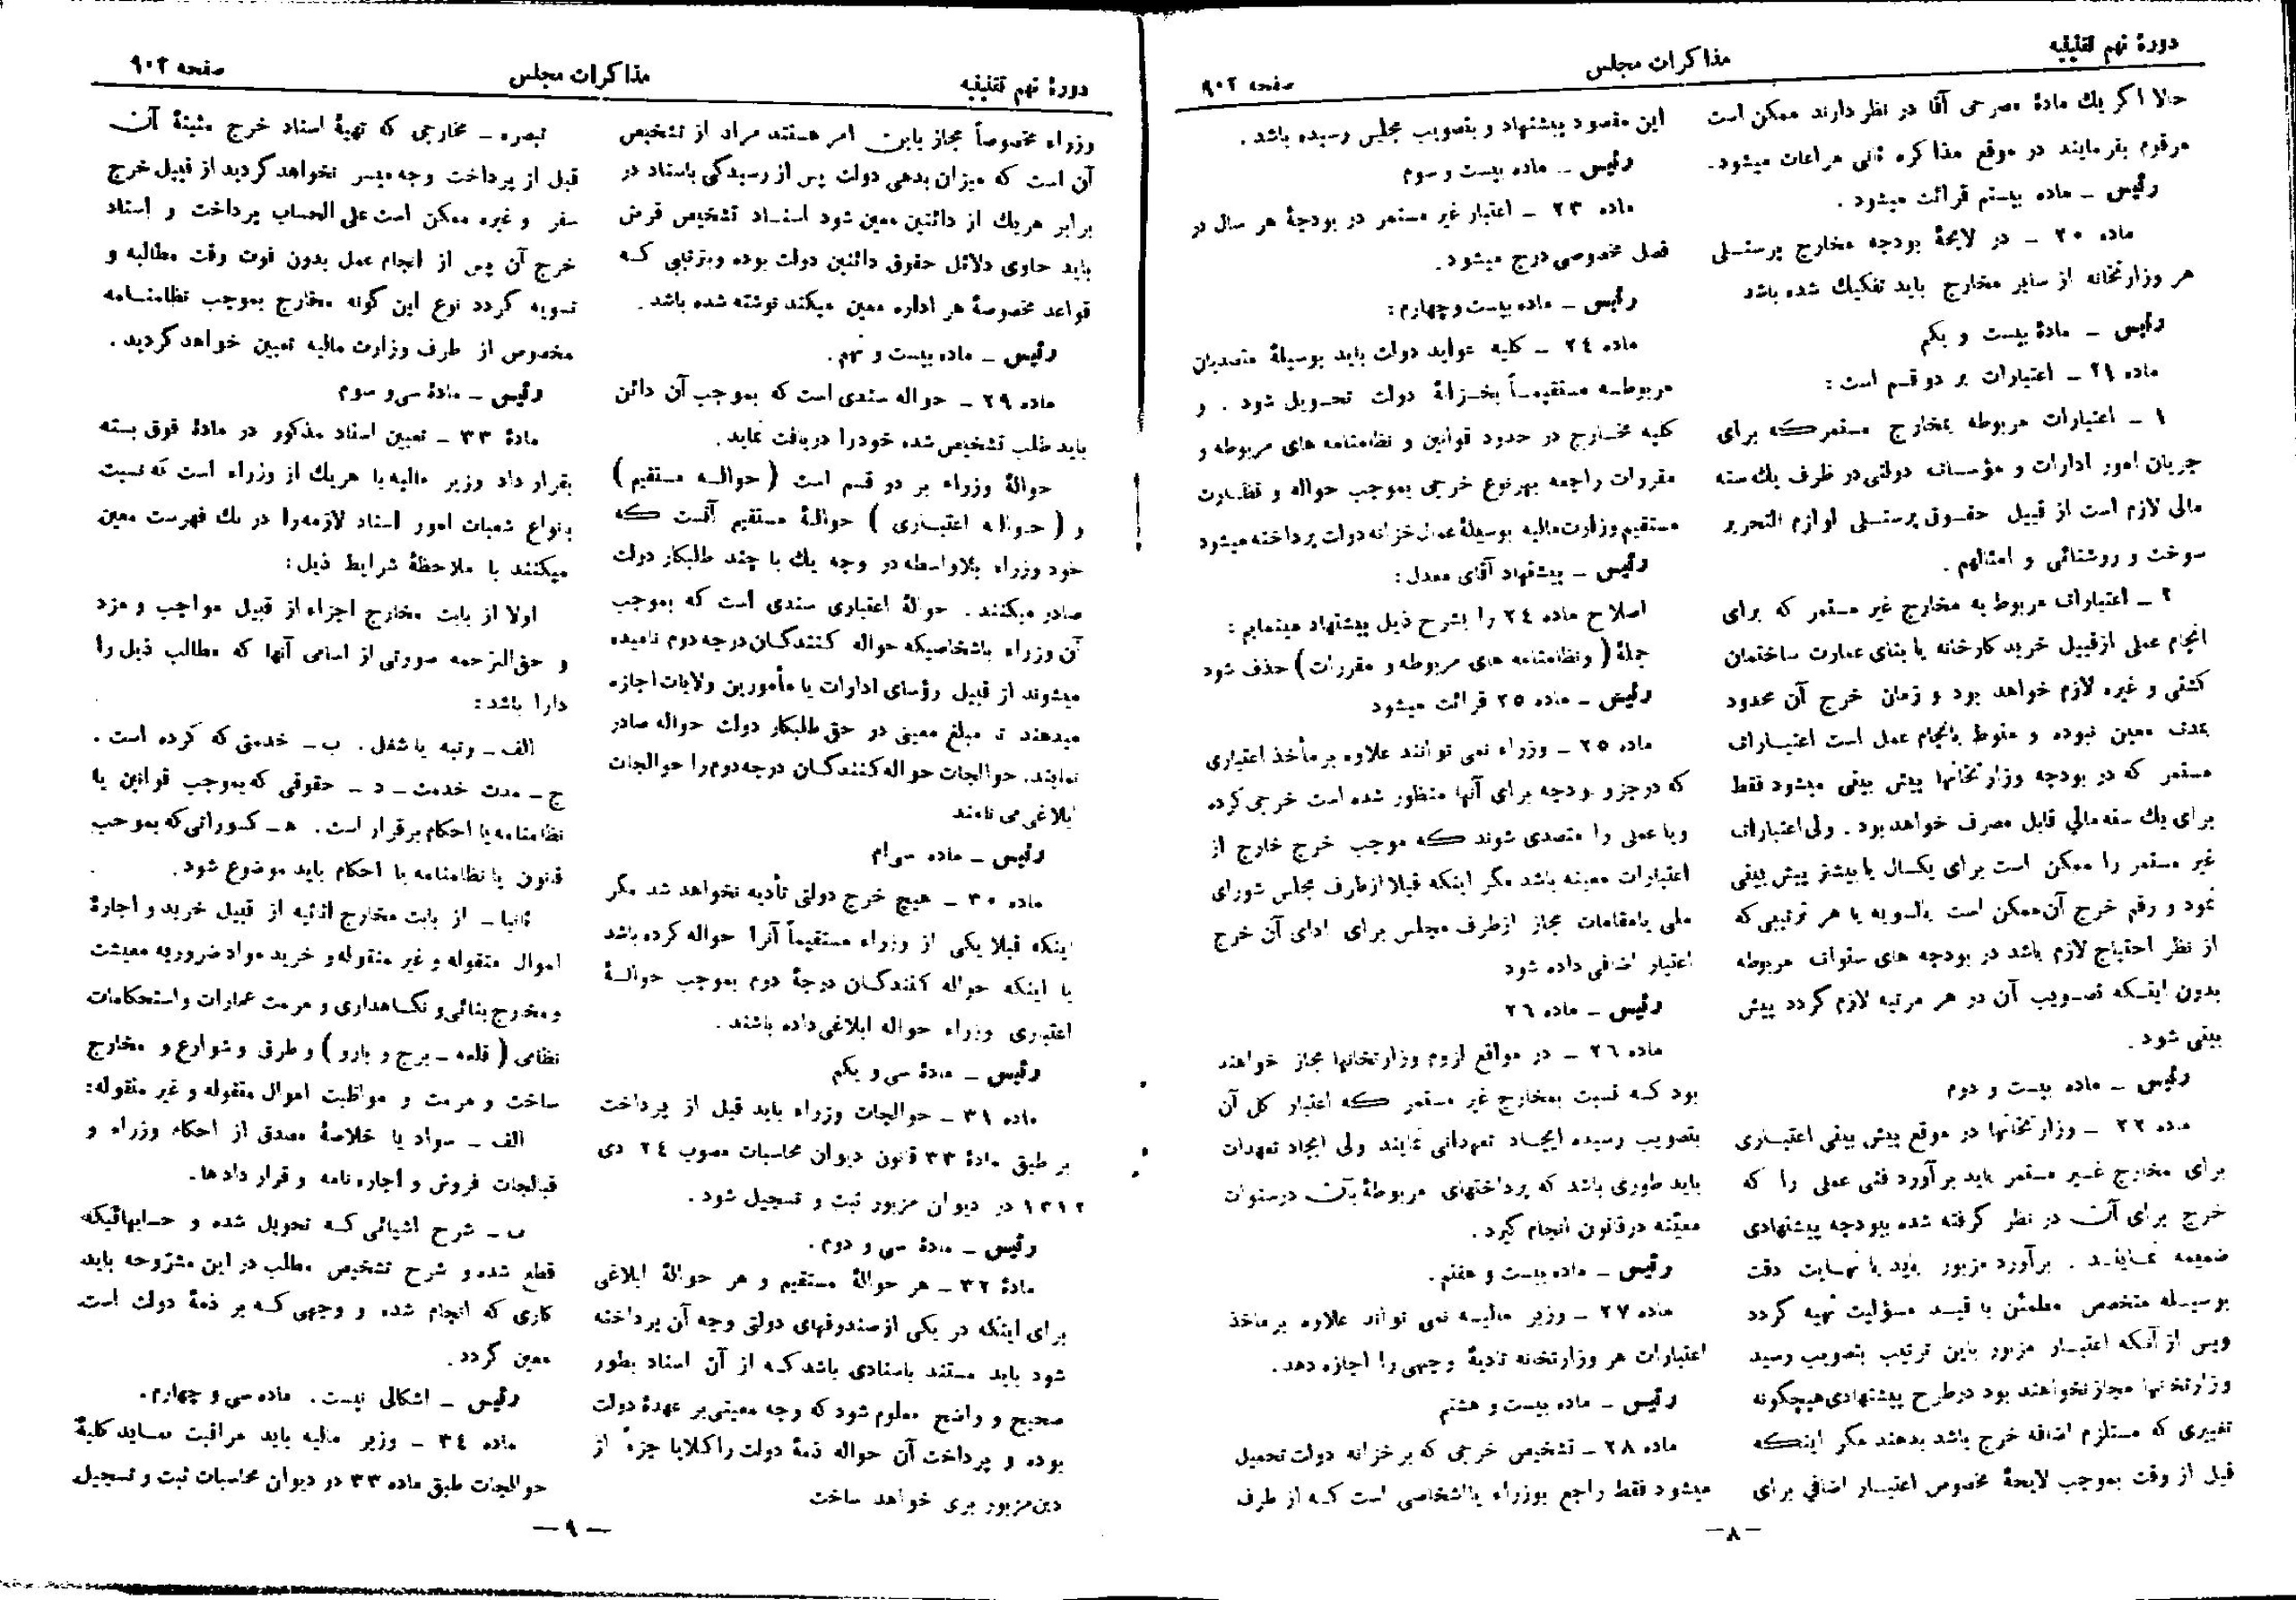 دورهٔ نهم تقنینیه
مذاکرات مجلس
صفحه ۹۰۲
حالا اگر یك مادهٔ مصرحی آقا در نظر دارند ممکن است
مرقوم بفرمایند در موقع مذاکره ثانی مراعات میشود.
رئیس ـ ماده بیستم قرائت میشود .
ماده ۲۰ ـ در لایحهٔ بودجه مخارج پرسنـلی
هر وزارتخانه از سایر مخارج باید تفکیك شده باشد
رئیس ـ مادهٔ بیست و یکم
ماده ۲۱ ـ اعتبارات بر دو قسم است :
۱ ـ اعتبارات مربوطه بمخارج مستمرکه برای
جریان امور ادارات و مؤسسات دولتی در ظرف یك سنه
مالی لازم است از قبیل حقـوق پرسنـلی لوازم التحریر
سوخت و روشنائی و امثالهم .
۲ ـ اعتبارات مربوط به مخارج غیر مستمر که برای
انجام عملی ازقبیل خرید کارخانه یا بنای عمارت ساختمان
کشتی و غیره لازم خواهد بود و زمان خرج آن محدود
بمدت معین نبوده و منوط بانجام عمل است اعتبـارات
مستمر که در بودجه وزارتخانها پیش بینی میشود فقط
برای یك سنه مالی قابل مصرف خواهد بود . ولی اعتبارات
غیر مستمر را ممکن است برای یکسال یا بیشتر پیش بینی
نمود و رقم خرج آن ممکن است بالسویه یا هر ترتیبی که
از نظر احتیاج لازم باشد در بودجه های سنوات مربوطه
بدون اینـکه تصـویب آن در هر مرتبه لازم گردد پیش
بینی شود .
رئیس ـ ماده بیست و دوم
ماده ۲۲ ـ وزارتخانها در موقع پیش بینی اعتبـاری
برای مخارج غـیر مستمر باید برآورد فنی عملی را که
خرج برای آن در نظر گرفته شده ببودجه پیشنهادی
ضمیمه نمـاینـد . برآورد مزبور باید با نهـایت دقت
بوسیـله متخصص مطمئن با قیـد مسؤلیت تهیه گردد
وپس از آنکه اعتبـار مزبور باین ترتیب بتصویب رسید
وزارتخانها مجاز نخواهند بود درطرح پیشنهادی هیچگونه
تغییری که مستلزم اضافه خرج باشد بدهند مگر اینـکه
قبل از وقت بموجب لایحهٔ مخصوص اعتبـار اضافی برای
این مقصود پیشنهاد و بتصویب مجلس رسیده باشد .
رئیس ـ ماده بیست و سوم
ماده ۲۳ ـ اعتبار غیر مستمر در بودجهٔ هر سال در
فصل مخصوصی درج میشود.
رئیس ـ ماده بیست و چهارم :
ماده ۲۴ ـ کلیه عواید دولت باید بوسیلهٔ متصدیان
مربوطـه مستقیمـاً بخـزانهٔ دولت تحـویل شود . و
کلیه مخـارج در حدود قوانین و نظامنامه های مربوطه و
مقررات راجعه بهرنوع خرجی بموجب حواله و نظـارت
مستقیم وزارت مالیه بوسیلهٔ عمال خزانه دولت پرداخته میشود
رئیس ـ پیشنهاد آقای معدل :
اصلاح ماده ۲۴ را بشرح ذیل پیشنهاد مینمایم :
جملهٔ ( ونظامنامه های مربوطه و مقررات ) حذف شود
رئیس ـ ماده ۲۵ قرائت میشود
ماده ۲۵ ـ وزراء نمی توانند علاوه بر مأخذ اعتباری
که درجزو بودجه برای آنها منظور شده است خرجی کرده
ویا عملی را متصدی شوند کـه موجب خرج خارج از
اعتبارات معینه باشد مگر اینکه قبلا ازطرف مجلس شورای
ملی یا مقامات مجاز ازطرف مجلس برای ادای آن خرج
اعتبار اضافی داده شود
رئیس ـ ماده ۲۶
ماده ۲۶ ـ در مواقع لزوم وزارتخانها مجاز خواهند
بود کـه نسبت بمخارج غیر مستمر کـه اعتبار کل آن
بتصویب رسیده ایجـاد تعهداتی نمایند ولی ایجاد تعهدات
باید طوری باشد که پرداختهای مربوطهٔ بآن درسنوات
معیّنه درقانون انجام گیرد .
رئیس ـ ماده بیست و هفتم .
ماده ۲۷ ـ وزیر مالیـه نمی تواند علاوه بر ماخذ
اعتبارات هر وزارتخانه تادیهٔ وجهی را اجازه دهد .
رئیس ـ ماده بیست و هشتم
ماده ۲۸ ـ تشخیص خرجی که بر خزانه دولت تحمیل
میشود فقط راجع بوزراء یا اشخاصی است کـه از طرف
ـ ۸ ـ
دورهٔ نهم تقنینیه
مذاکرات مجلس
صفحه ۹۰۳
وزراء مخصوصاً مجاز باین امر هستند مراد از تشخیص
آن است که میزان بدهی دولت پس از رسیدگی باسناد در
برابر هر یك از دائنین معین شود اسنـاد تشخیص قرض
باید حاوی دلائل حقوق دائنین دولت بوده وبترتیبی کـه
قواعد مخصوصهٔ هر اداره معین میکند نوشته شده باشد .
رئیس ـ ماده بیست و نهم .
ماده ۲۹ ـ حواله سندی است که بموجب آن دائن
باید طلب تشخیص شده خود را دریافت نماید .
حوالهٔ وزراء بر دو قسم است ( حوالـه مستقیم )
و ( حواله اعتبـاری ) حوالهٔ مستقیم آنست کـه
خود وزراء بلاواسطه در وجه یك یا چند طلبکار دولت
صادر میکنند . حوالهٔ اعتباری سندی است که بموجب
آن وزراء باشخاصیکه حواله کنندگـان درجه دوم نامیده
میشوند از قبیل رؤسای ادارات یا مأمورین ولایات اجازه
میدهند تا مبلغ معینی در حق طلبکار دولت حواله صادر
نمایند. حوالجات حواله کنندگـان درجه دوم را حوالجات
ابلاغی می نامند
رئیس ـ ماده سی ام
ماده ۳۰ ـ هیچ خرج دولتی تأدیه نخواهد شد مگر
اینکه قبلا یکی از وزراء مستقیماً آنرا حواله کرده باشد
یا اینکه حواله کنندگـان درجهٔ دوم بموجب حوالـهٔ
اعتباری وزراء حواله ابلاغی داده باشند .
رئیس ـ مادهٔ سی و یکم
ماده ۳۱ ـ حوالجات وزراء باید قبل از پرداخت
بر طبق مادهٔ ۳۳ قانون دیوان محاسبات مصوب ۲۴ دی
۱۳۱۲ در دیوان مزبور ثبت و تسجیل شود .
رئیس ـ مادهٔ سی و دوم .
مادهٔ ۳۲ ـ هر حوالهٔ مستقیم و هر حوالهٔ ابلاغی
برای اینکه در یکی از صندوقهای دولتی وجه آن پرداخته
شود باید مستند باسنادی باشد کـه از آن اسناد بطور
صحیح و واضح معلوم شود که وجه معینی بر عهدهٔ دولت
بوده و پرداخت آن حواله ذمهٔ دولت را کلا یا جزءً از
دین مزبور بری خواهد ساخت
تبصره ـ مخارجی که تهیهٔ اسناد خرج مثبتهٔ آن
قبل از پرداخت وجه میسر نخواهد گردید از قبیل خرج
سفر و غیره ممکن است علی الحساب پرداخت و اسناد
خرج آن پس از انجام عمل بدون فوت وقت مطالبه و
تسویه گردد نوع این گونه مخارج بموجب نظامنـامه
مخصوص از طرف وزارت مالیه تعیین خواهد گردید .
رئیس ـ مادهٔ سی و سوم
مادهٔ ۳۳ ـ تعیین اسناد مذکور در مادهٔ فوق بسته
بقرار داد وزیر مالیه با هر یك از وزراء است که نسبت
بانواع شعبات امور اسناد لازمه را در یك فهرست معین
میکنند با ملاحظهٔ شرایط ذیل :
اولا از بابت مخارج اجزاء از قبیل مواجب و مزد
و حق الزحمه صورتی از اسامی آنها که مطالب ذیل را
دارا باشد :
الف ـ رتبه یا شغل . ب ـ خدمتی که کرده است .
ج ـ مدت خدمت ـ د ـ حقوقی که بموجب قوانین یا
نظامنامه یا احکام برقرار است . هـ ـ کسوراتی که بموجب
قانون یا نظامنامه یا احکام باید موضوع شود .
ثانیا ـ از بابت مخارج اثاثیه از قبیل خرید و اجارهٔ
اموال منقوله و غیر منقوله و خرید مواد ضروریه معیشت
و مخارج بنائی و نگـاهداری و مرمت عمارات و استحکامات
نظامی ( قلعه ـ برج و بارو ) و طرق و شوارع و مخارج
ساخت و مرمت و مواظبت اموال منقوله و غیر منقوله :
الف ـ سواد یا خلاصهٔ مصدق از احکام وزراء و
قبالجات فروش و اجاره نامه و قرار دادها .
ب ـ شرح اشیائی کـه تحویل شده و حسابهائیکه
قطع شده و شرح تشخیص مطلب در این مشروحه باید
کاری که انجام شده و وجهی کـه بر ذمهٔ دولت است
معین گردد .
رئیس ـ اشکالی نیست . ماده سی و چهارم .
ماده ۳۴ ـ وزیر مالیه باید مراقبت نمـاید کلیهٔ
حوالجات طبق ماده ۳۳ در دیوان محاسبات ثبت و تسجیل
ـ ۹ ـ